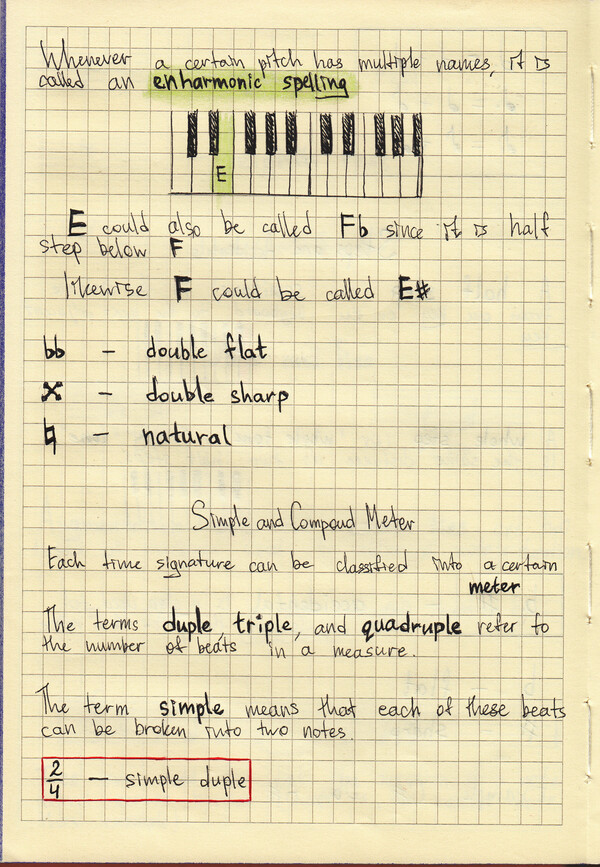 Whenever a certain pitch has multiple names, it is
called an enharmonic spelling
E
E could also be called Fb since it is half
step below F
likewise F could be called E#
bb - double flat
x - double sharp
♮ - natural
Simple and Compoud Meter
Each time signature can be classified into a certain
meter
The terms duple, triple, and quadruple refer to
the number of beats in a measure.
The term simple means that each of these beats
can be broken into two notes.
2/4 - simple duple